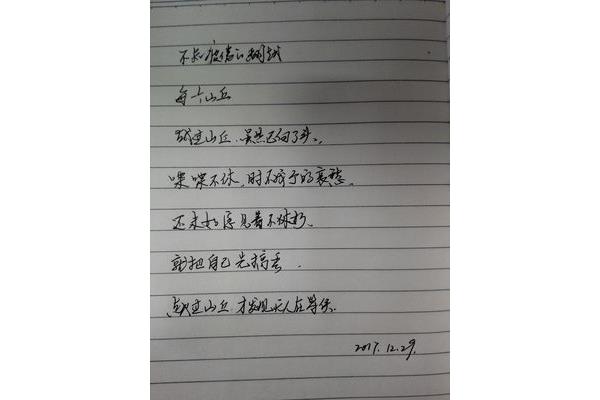 不知疲倦的翻越
每一个山丘
越过山丘，虽然已白了头，
喋喋不休，时不我予的哀愁。
还未如愿见着不朽，
就把自己先搞丢．
越过山丘，才发现无人在等候．
2017.12.29.